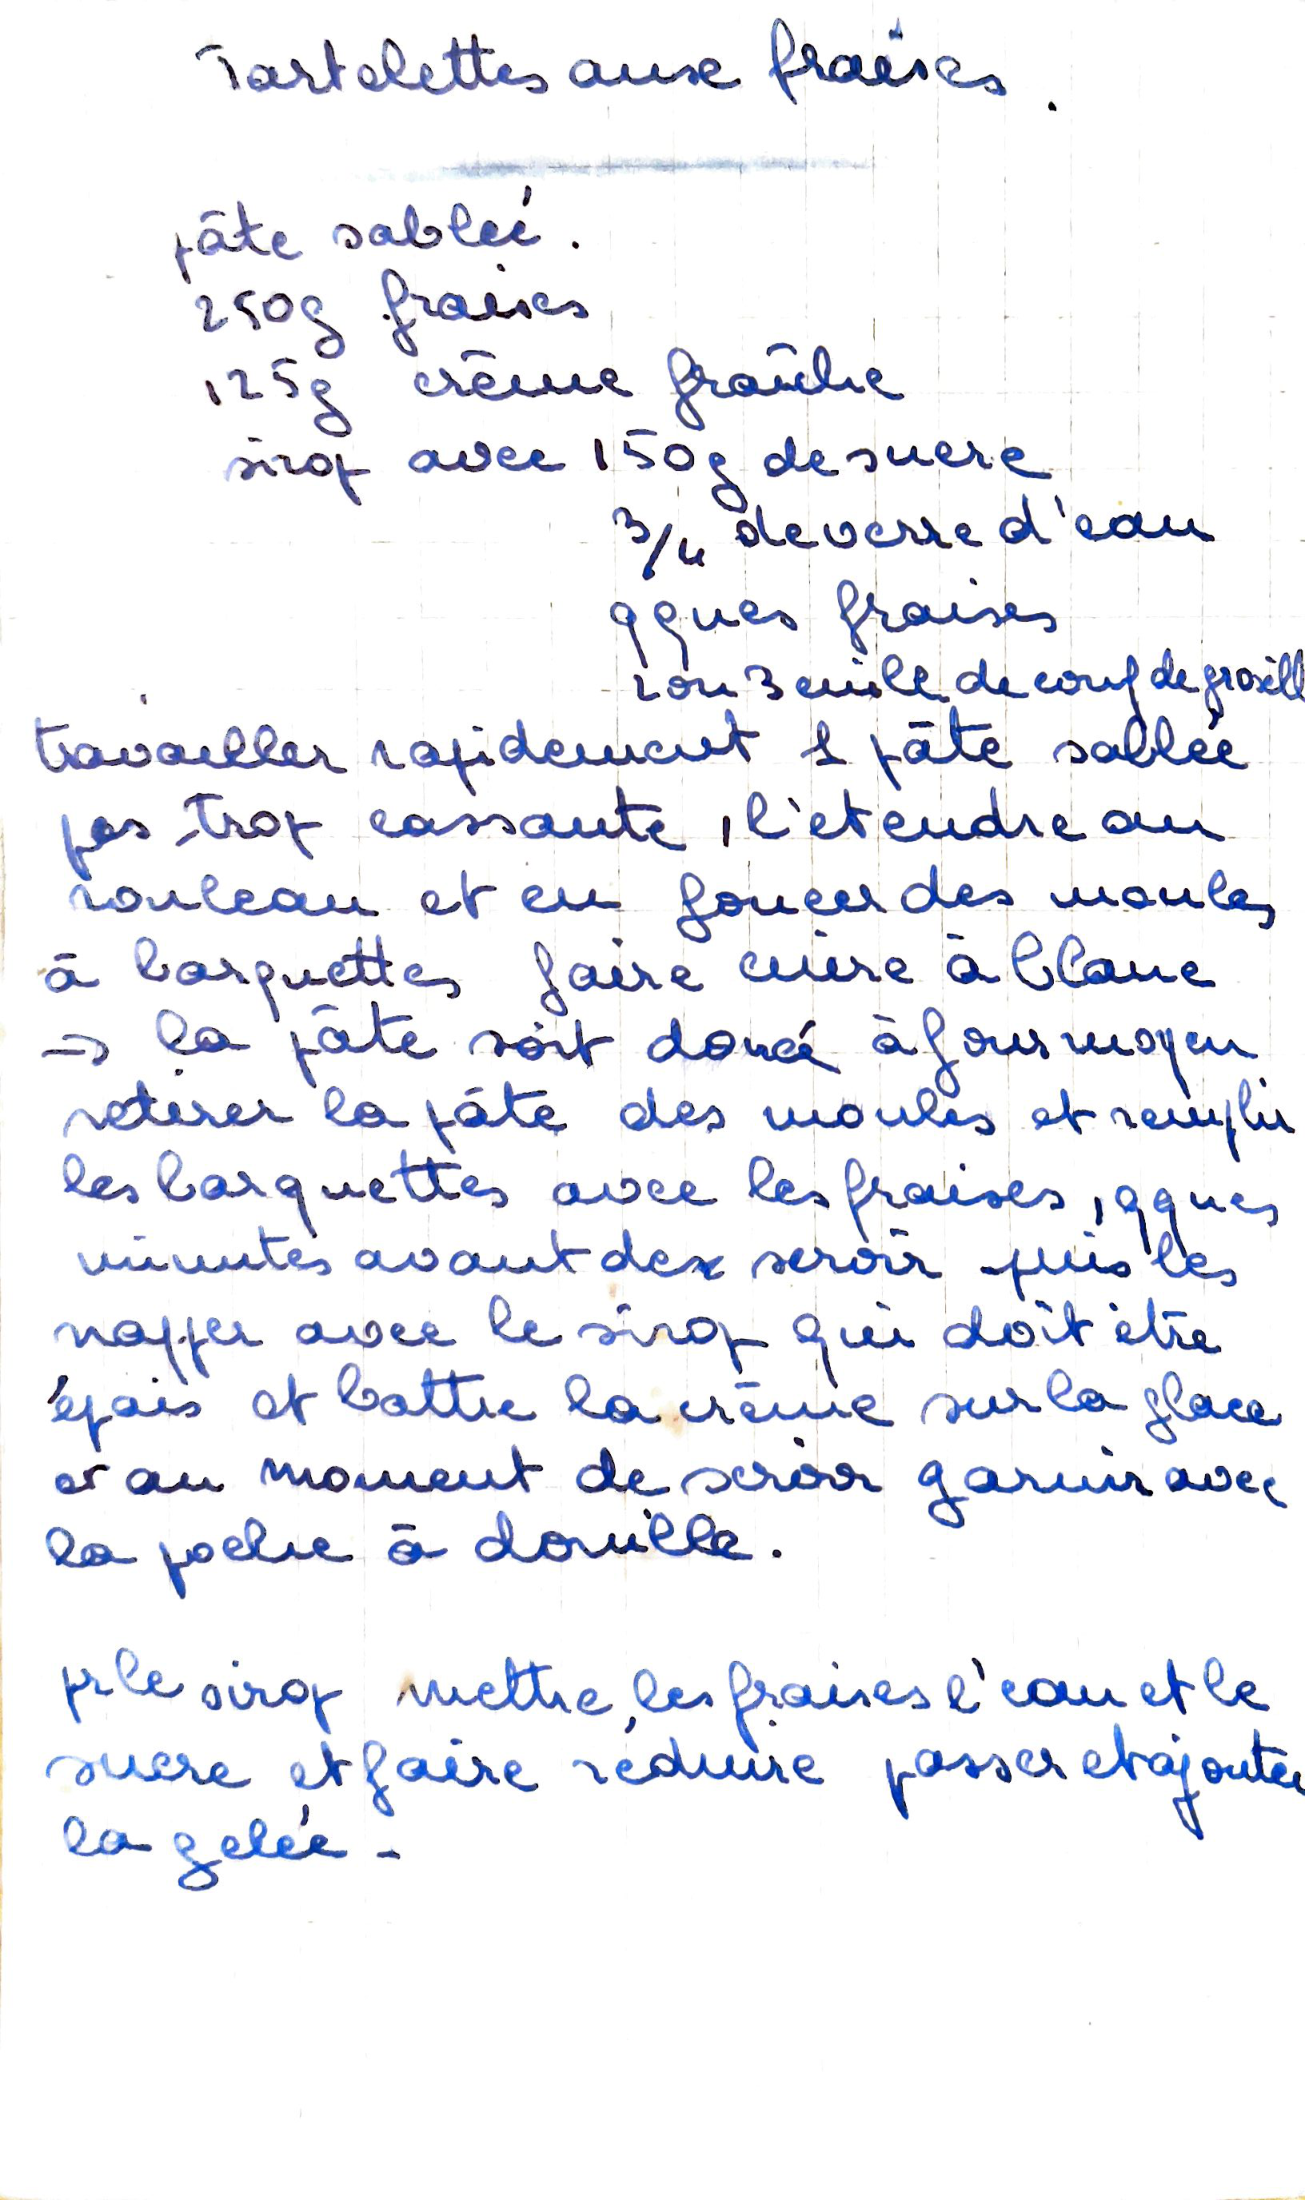 Tartelettes aux fraises.
pâte sableé.
250g fraises
125g crème fraîche
sirop avec 150g de sucre
3/4 de verre d'eau
qques fraises
2 ou 3 cuile de conf de groseill
travailler rapidement 1 pâte sablée
pas trop cassante, l'etendre au
rouleau et en foncer des moules
à barquettes faire cuire à blanc
→ la pâte soit dorée à four moyen
retirer la pâte des moules et remplir
les barquettes avec les fraises, qques
minutes avant de servir puis les
napper avec le sirop qui doit être
épais et battre la crème sur la glace
et au moment de servir garnir avec
la poche à douille.
pr le sirop mettre les fraises l'eau et le
sucre et faire réduire passer et ajouter
la gelée -